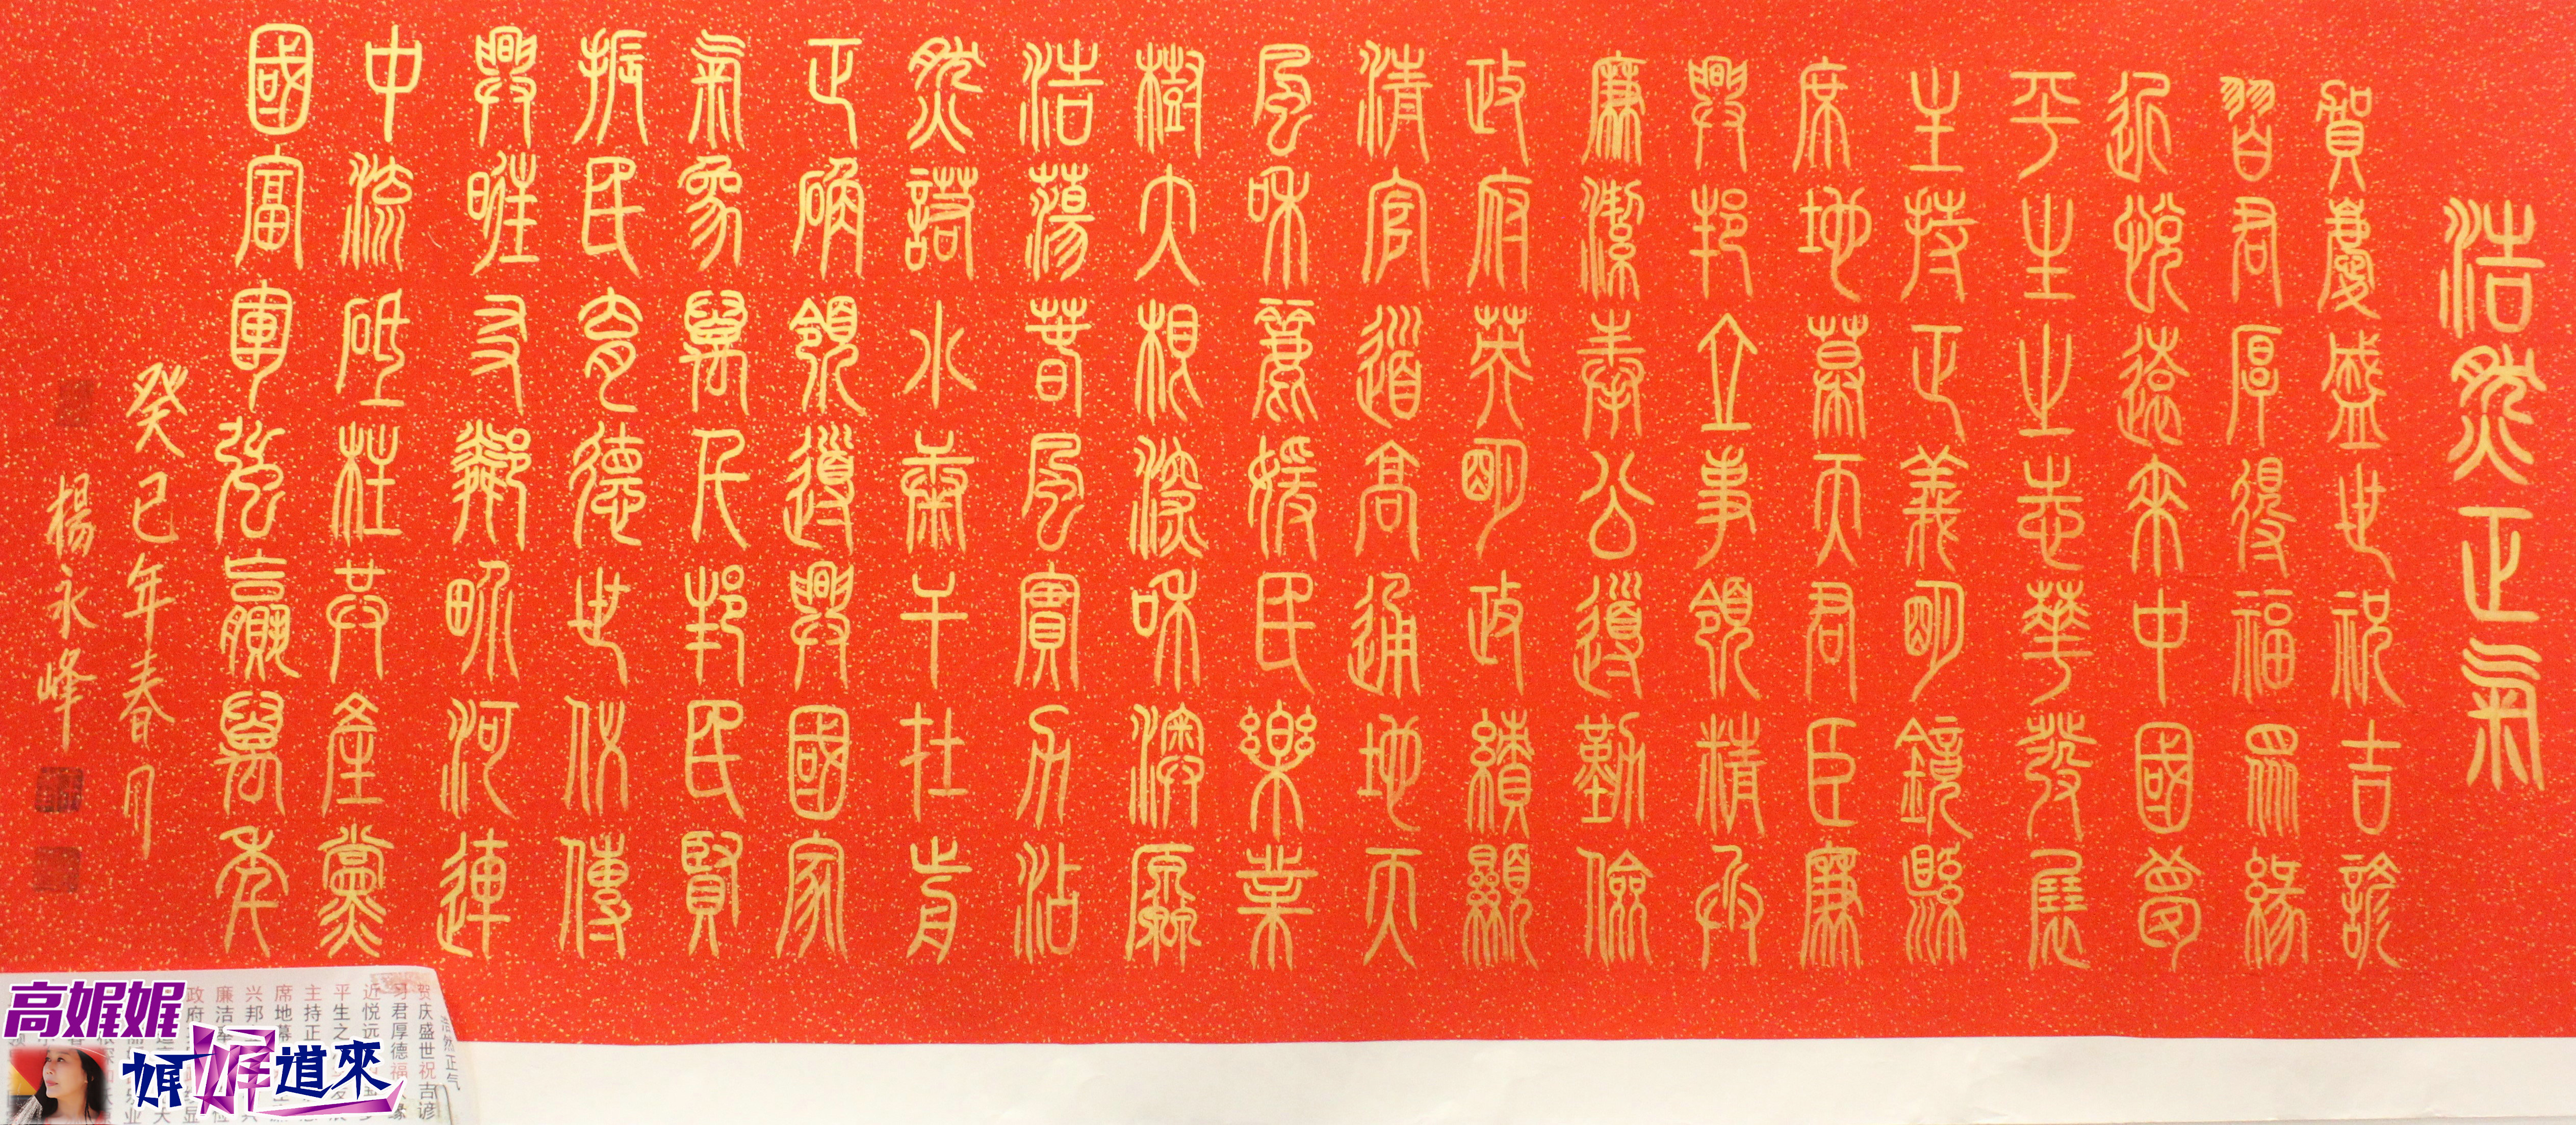 浩然正氣
賀慶盛世祝吉諺
習君厚得福緣
近悅遠來中國夢
平生之志華發展
主持正義明鏡縣
席地幕天君臣廉
興邦立事領精兵
廉潔奉公遵勤儉
政府英明政績顯
清官道高通地天
風和麗媛民樂業
樹大根深和
浩蕩春風實可沾
然諾水
正確領導興國家
氣象萬邦民賢
振民育德世代傳
興旺友鄰河連
中流砥柱共產黨
國富軍強贏萬年
癸巳年春月
楊永峰
浩然正气
贺庆盛世祝吉谚
习君厚德福缘
近悦远
平生之
主持正
席地幕
兴邦
廉洁奉
政府
高娓娓
娓娓道來